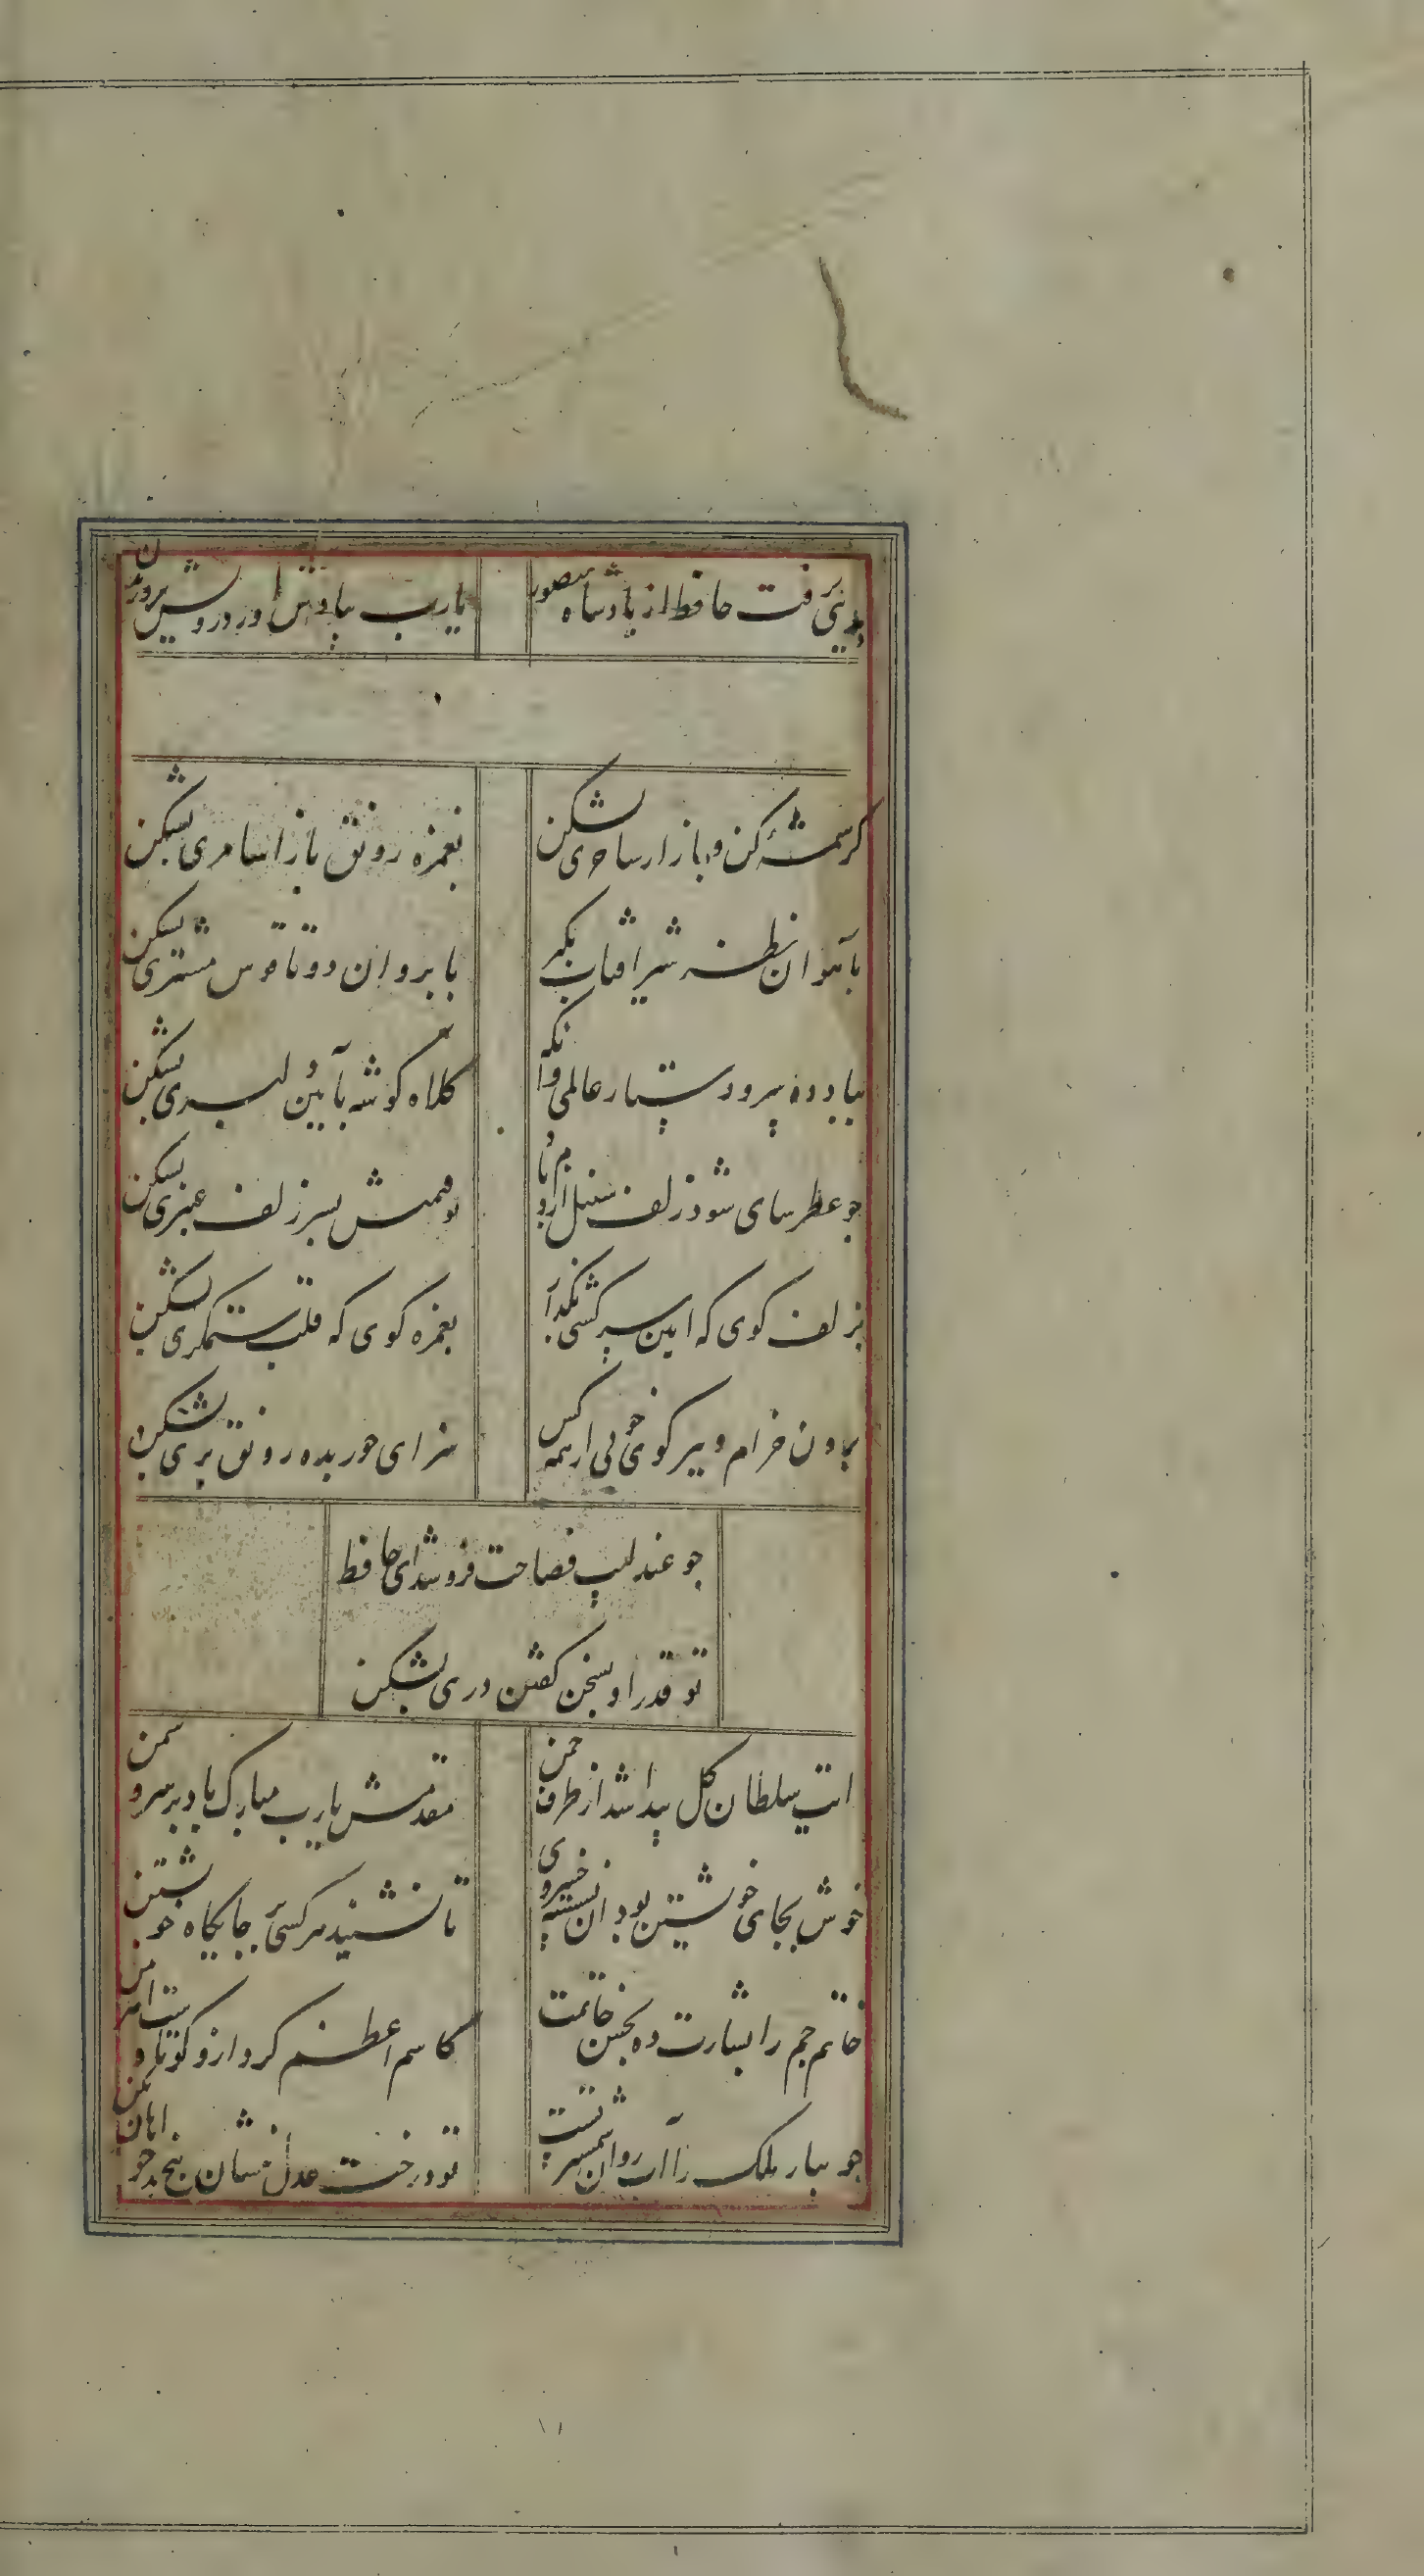 پذیرفت حافظ از پادشاه منصور
یارب بیادش آور درویش پروریدن
کرشمهٔ کن و بازار ساحری بشکن
بغمزه رونق بازار سامری بشکن
بآهوان نظر شیر آفتاب بگیر
بابروان دوتا قوس مشتری بشکن
بباد ده سرو دستار عالمی وانکه
کلاه کوشه بآیین دلبری بشکن
جو عطرسای شود زلف سنبل از دم باد
تو قیمتش بسر زلف عنبری بشکن
بزلف کوی که ایین سرکشی بگذار
بغمزه کوی که قلب ستمکری بشکن
برون خرام و ببر کوی خوبی از همه کس
سزای حور بده رونق بری بشکن
جو عندلیب فصاحت فروشد ای حافظ
تو قدر او بسخن کفتن دری بشکن
افسر سلطان کل پیدا شد از طرف جمن
مقدمش یارب مبارک باد بر سرو سمن
خوش بجای خویشتن بود ان نشست خسروی
تا نشیند هر کسی بجایکاه خویشتن
خاتم جم را بشارت ده بحسن خاتمت
کاسم اعظم کرد ازو کوتاه دست اهرمن
جویبار ملک را آب روان شمشیر تست
تو درخت عدل بنشان بیخ بدخواهان بکن